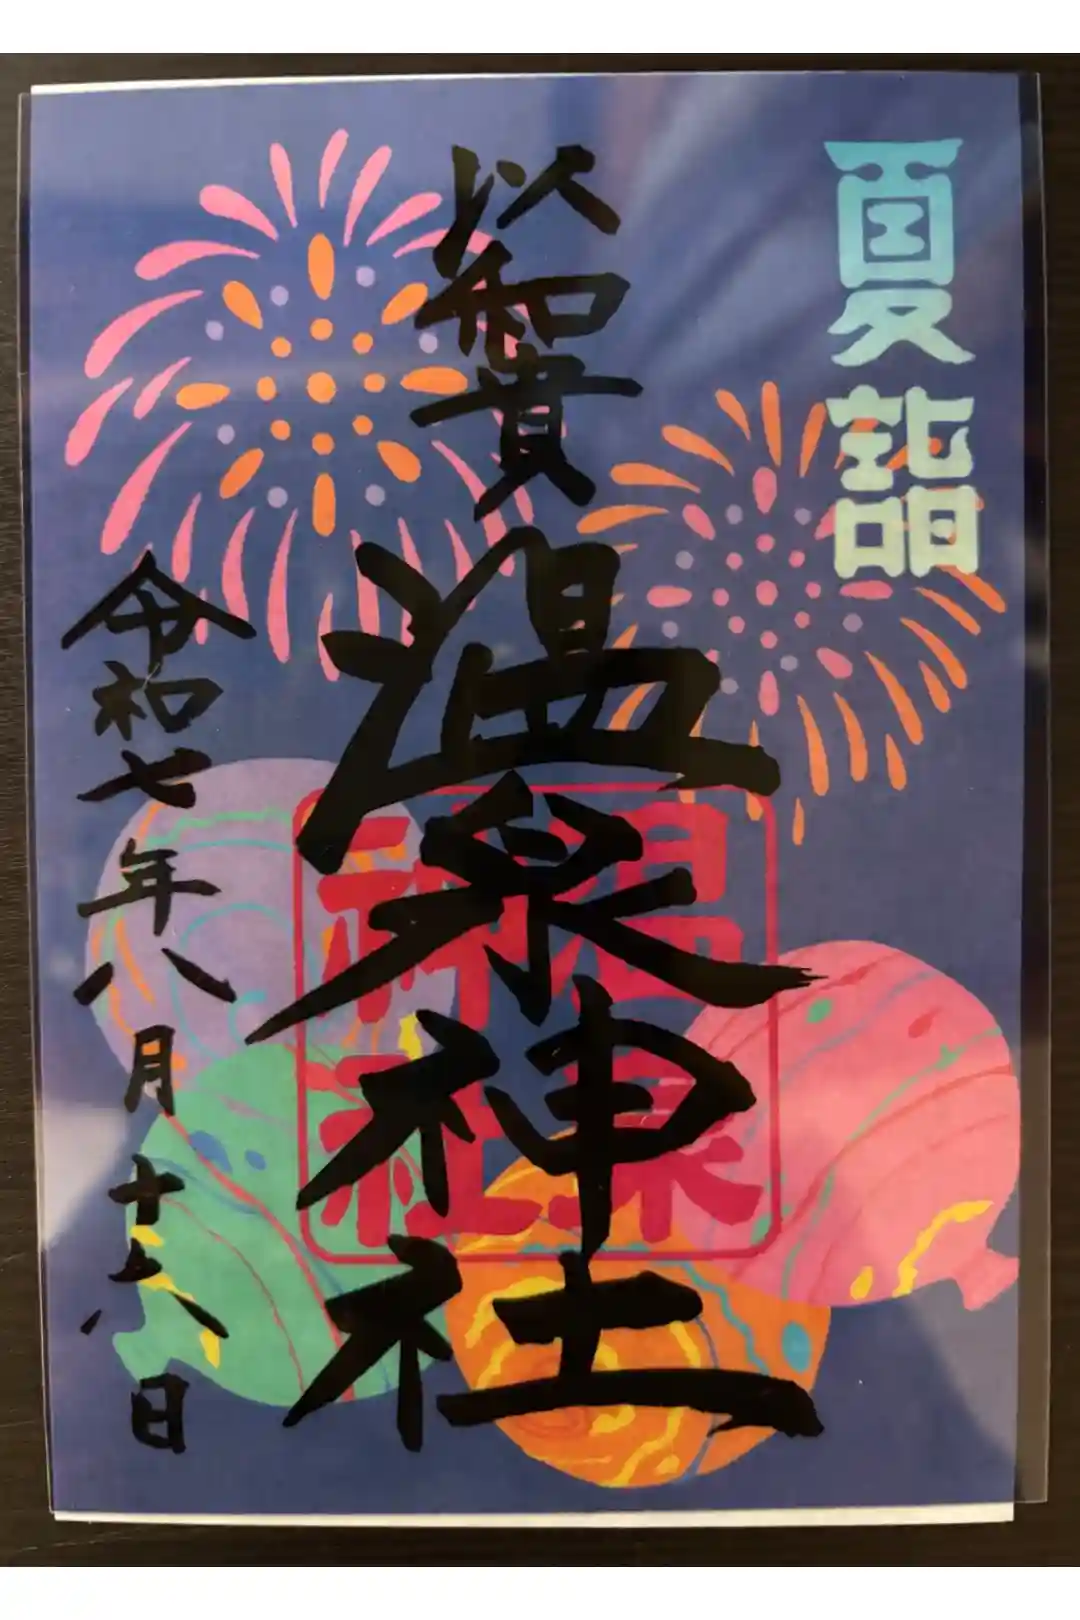 夏詣
以和貴
温泉神社
温泉
神社
令和七年八月十六日